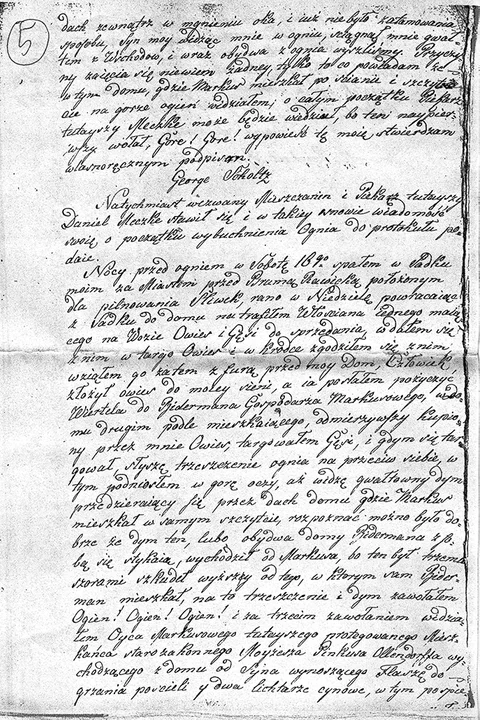 5
dach zewnątrz w mgnieniu oka, i iuż nie było zatamowania
sposobu, Syn moy widząc mnie w ogniu, ściągnął mnie gwał
tem z Wschodow, i wraz obydwa z ognia wyszliśmy. Przyczy
ny zaięcia się niewiem żadney tylko to co powiadam że
w tym domu, gdzie Markus mieszkał po ścianie i szczyt
cie na gorze ogień widziałem; o całym początku Piekarz
tutayszy Meczke może będzie wiedział, bo ten naypier
wszy wołał, Gore! Gore! wypowieść tę moię, stwierdzam
własnoręcznym podpisem.
George Scholtz
Natychmiast wezwany Mieszczanin i Piekarz tutayszy
Daniel Meczke stawił się i w takiey snowie wiadomość
swoię, o początku wybuchnienia Ognia do protokułu po
daie.
Nocy przed ogniem w Sobotę 18go spałem w Sadku
moim za Miastem przed Bramą Rawicką położonym
dla pilnowania Śliwek rano w Niedzielę powracaiąc
z Sadku do domu natrafiłem Włościana iednego maią
cego na Wozie Owies i Gęsi do sprzedania, wdałem się
z nim w targ o Owies i w krotce zgodziłem się z nim
wziąłem go zatem z furą przed moy Dom, Człowiek
złożył owies do moiey sieni, a ia posłałem pożyczyć
Wiertela do Bidermana Gospodarza Markusowego, w do
mu drugim podle mieszkaiącego, odmierzywszy kupio
ny przez mnie Owies, targowałem Gęsi, i gdym się tar
gował, słyszę trzeszczenie ognia na przeciw siebie, w
tym podniosłem w gorę oczy, aż widzę gwałtowny dym
przedzieraiący się przez dach domu gdzie Markus
mieszkał w samym szczycie, rozpoznać można było do
brze że dym ten, lubo obydwa domy Bidermana z so
bą się stykaią, wychodził od Markusa, bo ten był trzema
szorami szkudeł wyższy od tego, w ktorym sam Bider
man mieszkał, na to trzeszczenie i dym zawołałem
Ogień! Ogień! Ogień! i za trzecim zawołaniem widzia
łem Oyca Markusowego tutayszego protegowanego Miesz
kańca starozakonnego Moyżesza Pinkusa Ollendorffa wy
chodzącego z domu od Syna wynoszącego Flaszę do
grzania pościeli y dwa lichtarze cynowe, w tym pospie